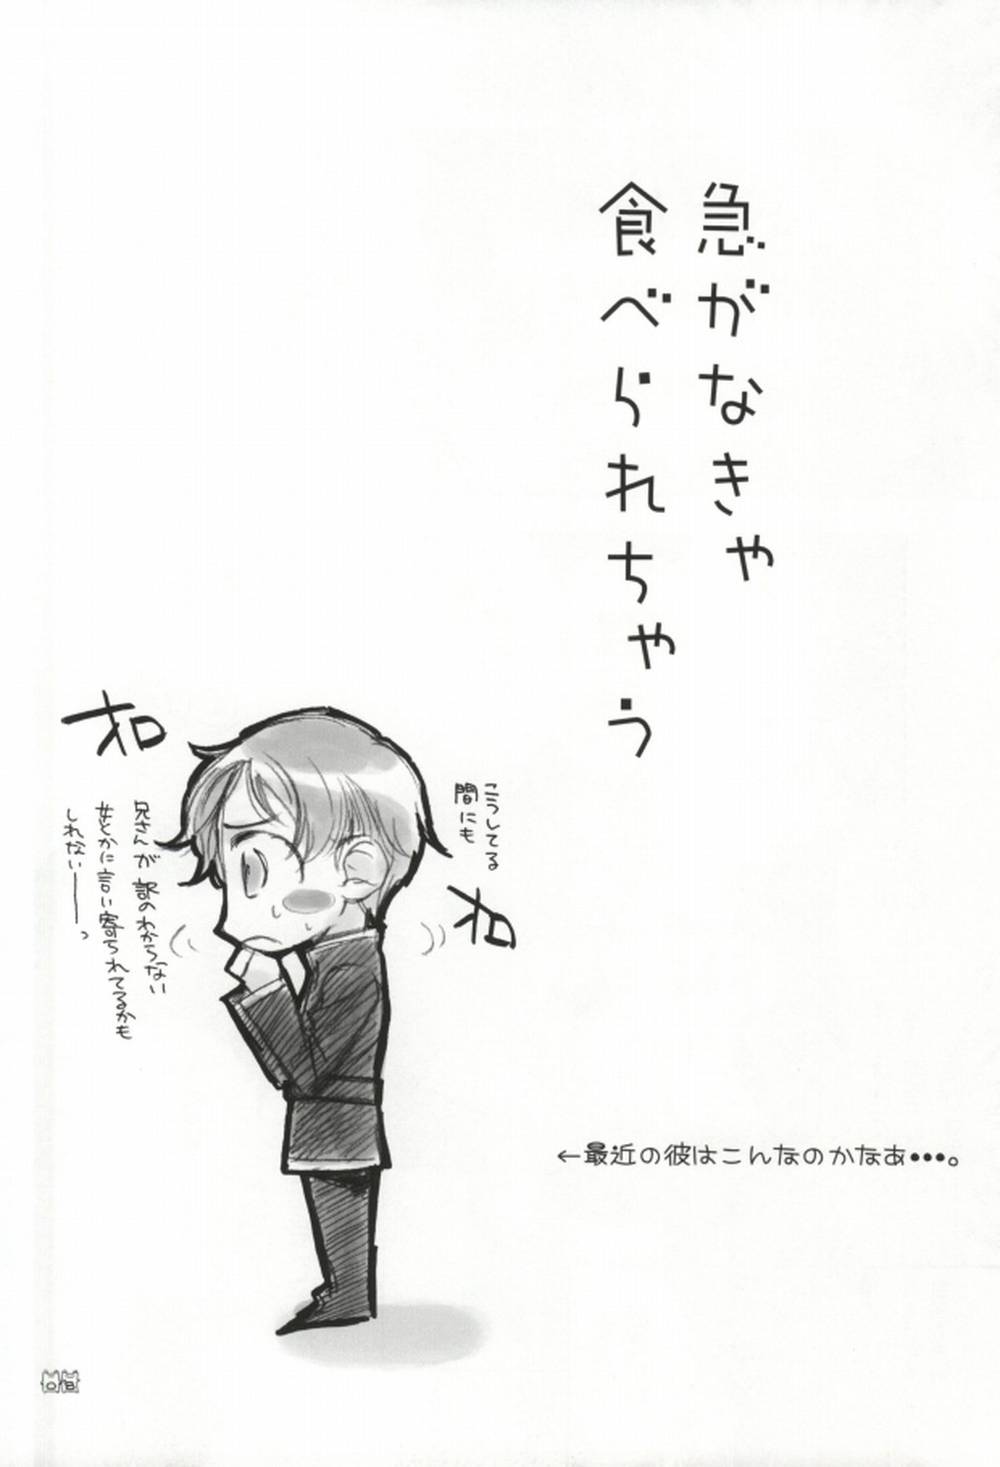 急がなきゃ
食べられちゃう
こうしてる
間にも
オロ
オロ
兄さんが訳のわからない
女とかに言い寄られてるかも
しれない――っ
←最近の彼はこんなのかなあ•••。